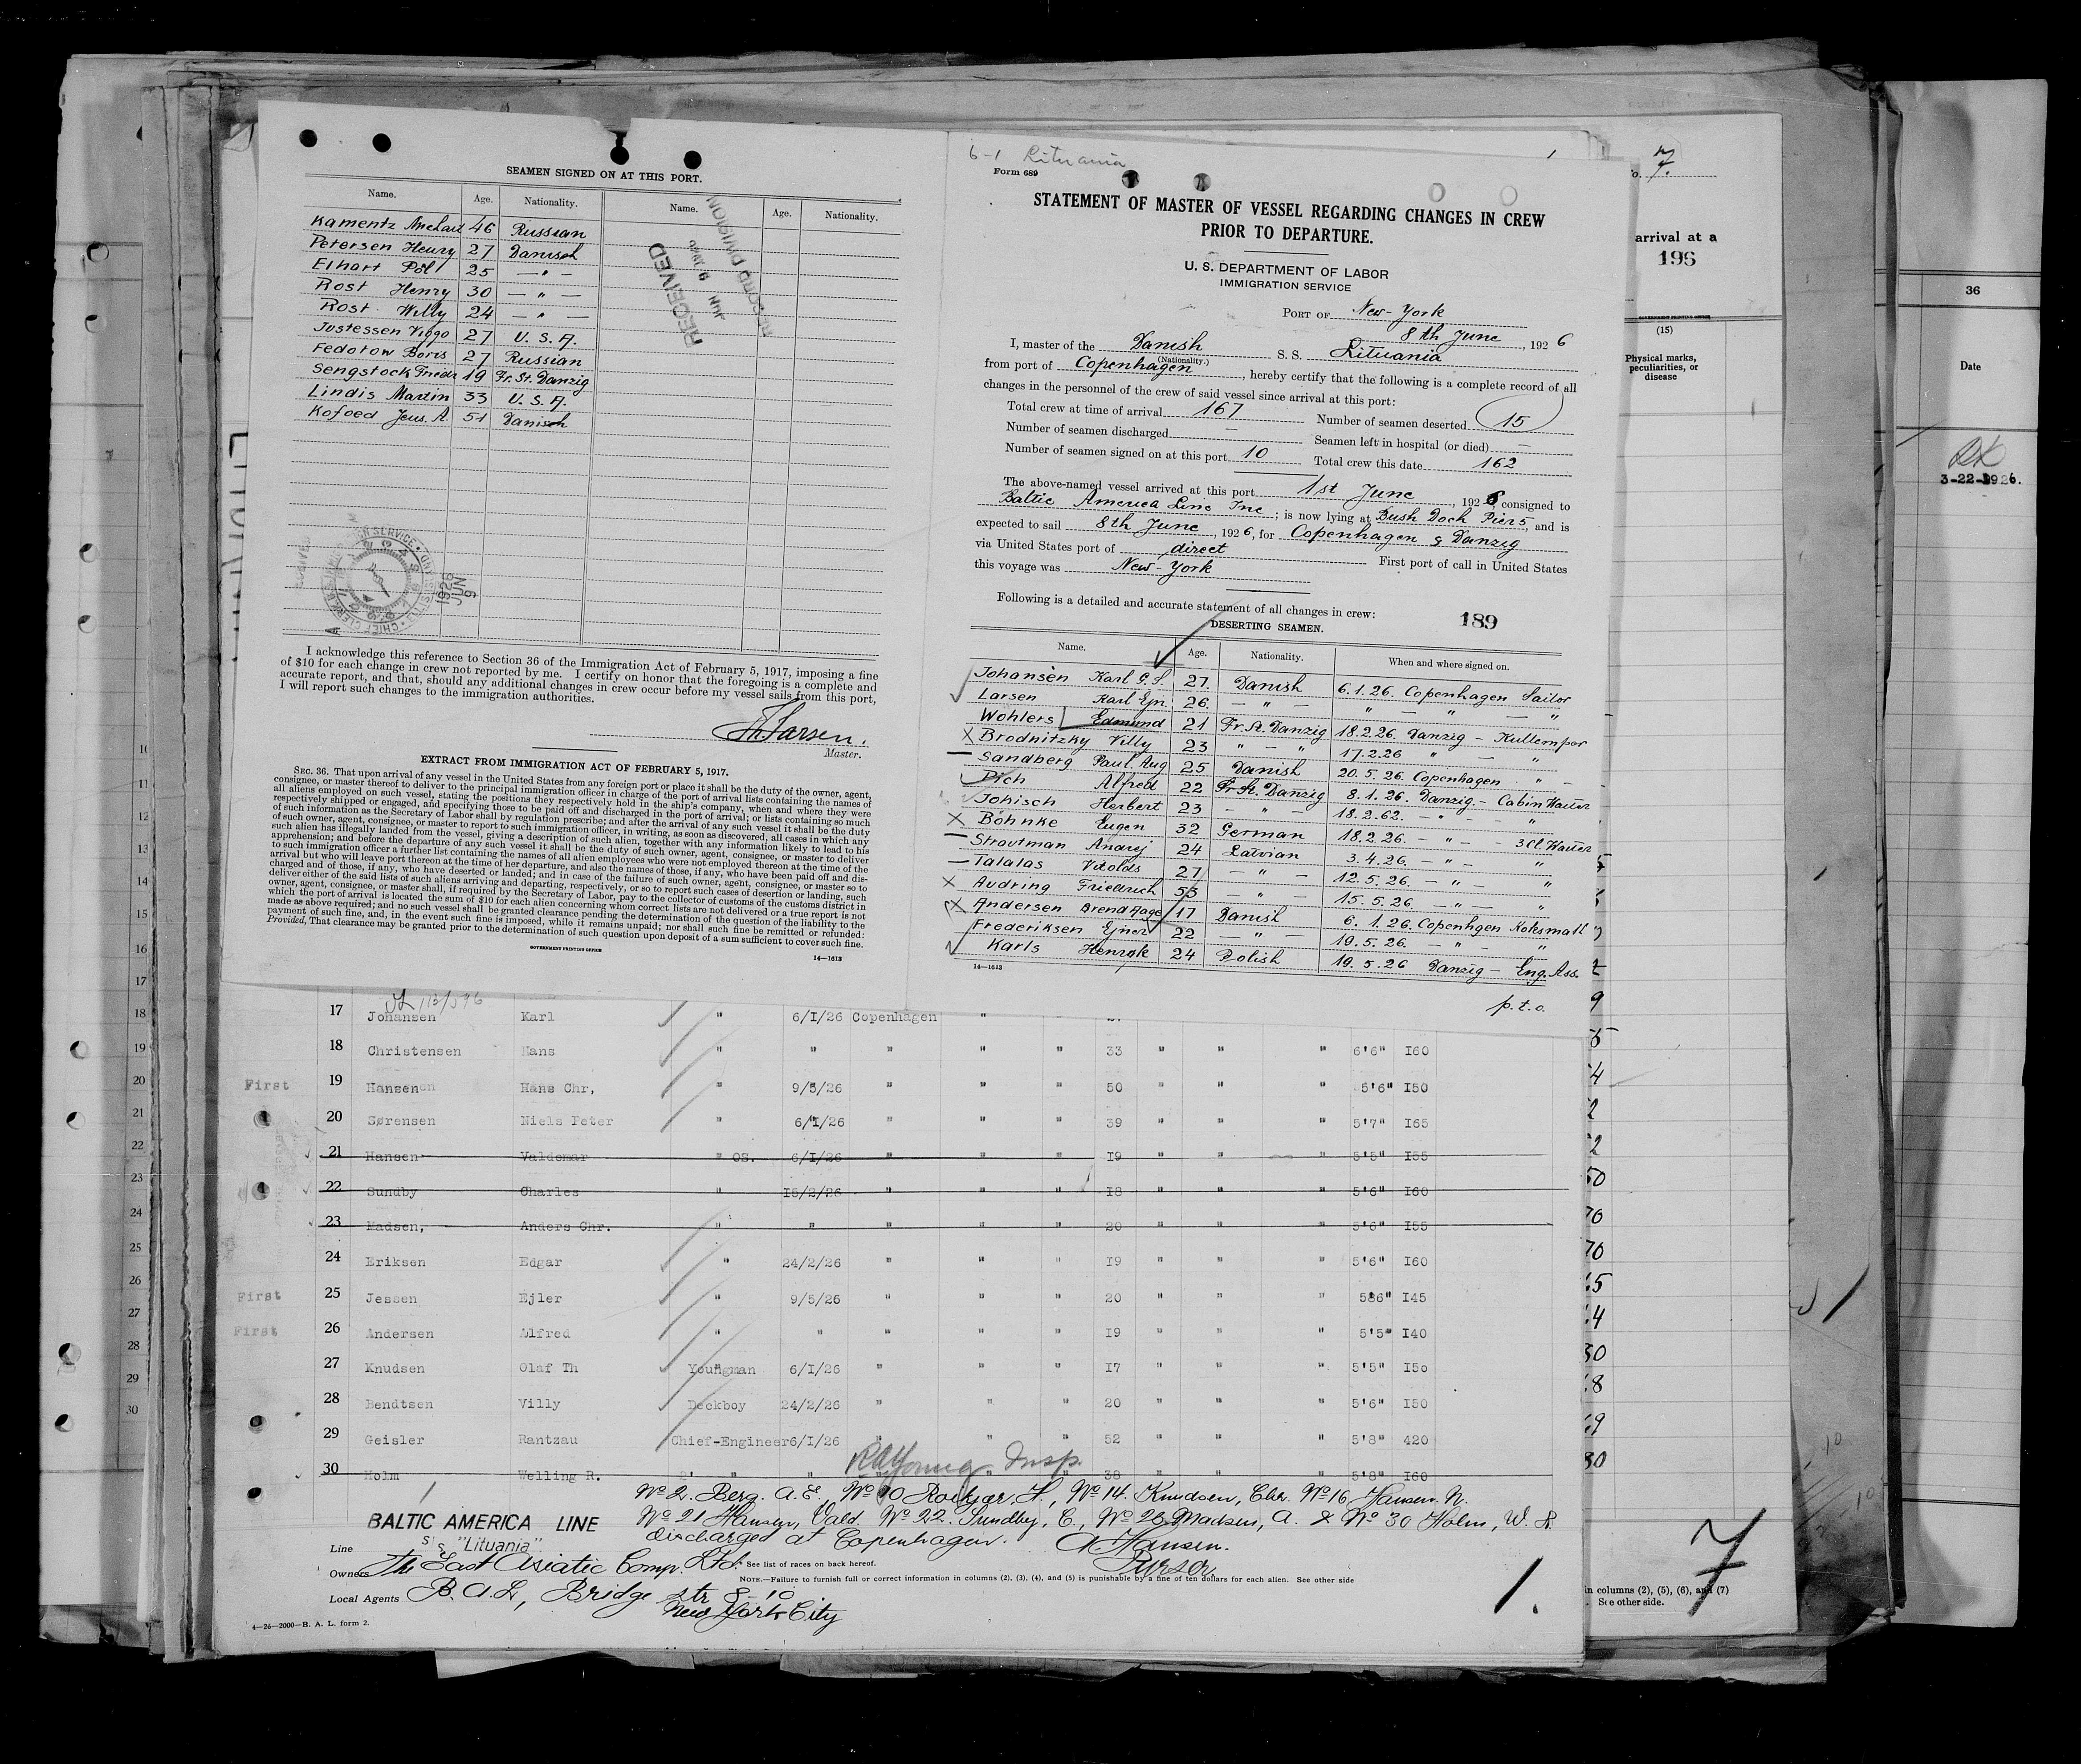 SEAMEN SIGNED ON AT THIS PORT.
Name. Age. Nationality. Name. Age. Nationality.
Kamentz Michael 46 Russian
Petersen Henry 27 Danish
Elhart Pól 25 — " —
Rost Henry 30 — " —
Rost Willy 24 — " —
Justessen Viggo 27 U. S. A.
Fedotow Boris 27 Russian
Sengstock Friedr 19 Fr. St. Danzig
Lindis Martin 33 U. S. A.
Kofoed Jens. A. 51 Danish
RECEIVED
JUN 9 1926
RECORD DIVISION
1926
JUN
9
I acknowledge this reference to Section 36 of the Immigration Act of February 5, 1917, imposing a fine
of $10 for each change in crew not reported by me. I certify on honor that the foregoing is a complete and
accurate report, and that, should any additional changes in crew occur before my vessel sails from this port,
I will report such changes to the immigration authorities.
Master.
EXTRACT FROM IMMIGRATION ACT OF FEBRUARY 5, 1917.
SEC. 36. That upon arrival of any vessel in the United States from any foreign port or place it shall be the duty of the owner, agent,
consignee, or master thereof to deliver to the principal immigration officer in charge of the port of arrival lists containing the names of
all aliens employed on such vessel, stating the positions they respectively hold in the ship's company, when and where they were
respectively shipped or engaged, and specifying those to be paid off and discharged in the port of arrival; or lists containing so much
of such information as the Secretary of Labor shall by regulation prescribe; and after the arrival of any such vessel it shall be the duty
of such owner, agent, consignee, or master to report to such immigration officer, in writing, as soon as discovered, all cases in which any
such alien has illegally landed from the vessel, giving a description of such alien, together with any information likely to lead to his
apprehension; and before the departure of any such vessel it shall be the duty of such owner, agent, consignee, or master to deliver
to such immigration officer a further list containing the names of all alien employees who were not employed thereon at the time of the
arrival but who will leave port thereon at the time of her departure, and also the names of those, if any, who have been paid off and dis-
charged and of those, if any, who have deserted or landed; and in case of the failure of such owner, agent, consignee, or master so to
deliver either of the said lists of such aliens arriving and departing, respectively, or so to report such cases of desertion or landing, such
owner, agent, consignee, or master shall, if required by the Secretary of Labor, pay to the collector of customs of the customs district in
which the port of arrival is located the sum of $10 for each alien concerning whom correct lists are not delivered or a true report is not
made as above required; and no such vessel shall be granted clearance pending the determination of the question of the liability to the
payment of such fine, and, in the event such fine is imposed, while it remains unpaid; nor shall such fine be remitted or refunded:
Provided, That clearance may be granted prior to the determination of such question upon deposit of a sum sufficient to cover such fine.
GOVERNMENT PRINTING OFFICE
14—1613
6-1 Lituania
Form 689
STATEMENT OF MASTER OF VESSEL REGARDING CHANGES IN CREW
PRIOR TO DEPARTURE.
U. S. DEPARTMENT OF LABOR
IMMIGRATION SERVICE
PORT OF New-York
8th June, 1926
I, master of the Danish S. S. Lituania
(Nationality.)
from port of Copenhagen, hereby certify that the following is a complete record of all
changes in the personnel of the crew of said vessel since arrival at this port:
Total crew at time of arrival 167 Number of seamen deserted 15
Number of seamen discharged — Seamen left in hospital (or died) —
Number of seamen signed on at this port 10 Total crew this date 162
The above-named vessel arrived at this port 1st June, 1926, consigned to
Baltic America Line Inc; is now lying at Bush Dock Pier 5, and is
expected to sail 8th June, 1926, for Copenhagen & Danzig
via United States port of direct First port of call in United States
this voyage was New-York
Following is a detailed and accurate statement of all changes in crew:
DESERTING SEAMEN. 189
Name. Age. Nationality. When and where signed on.
Johansen Karl G. S. 27. Danish 6.1.26. Copenhagen Sailor
Larsen Karl Ejn. 26. — " — " — " — "
Wohlers Edmund 21 Fr. St. Danzig 18.2.26. Danzig —
Brodnitzky Villy 23 " — " 17.2.26 " — "
Sandberg Paul. Aug 25 Danish 20.5.26. Copenhagen " —
Pich Alfred 22 Fr. St. Danzig 8.1.26. Danzig. — Cabin Waiter
Johisch Herbert 23 — " — 18.2.62. — " — "
Böhnke Eugen 32 German 18.2.26. — " — 3 Cl. Waiter
Strautman Andrej 24 Latvian 3.4.26. — " — "
Talalas Vitolds 27 — " — 12.5.26. — " — "
Audring Friedrich 53 — " — 15.5.26. — " — "
Andersen Brend Aage 17 Danish 6.1.26. Copenhgen Koksmatt
Frederiksen Ejner 22 — " — 19.5.26. — " — "
Karls Henrok 24 Polish 19.5.26 Danzig — Eng. Ass.
14—1613
p. t. o.
17 Johansen Karl " 6/I/26 Copenhagen "
18 Christensen Hans " " " " " 33 " " " 6'6" I60
First 19 Hansenen Hans Chr, " 9/5/26 " " " 50 " " " 5'6" I50
20 Sørensen Niels Peter " 6/I/26 " " " 39 " " " 5'7" I65
21 Hansen Valdemar " OS. 6/I/26 " " " I9 " " " 5'5" I55
22 Sundby Charles " I5/2/26 " " " I8 " " " 5'6" I60
23 Madsen, Anders Chr. " " " " " 20 " " " 5'6" I55
24 Eriksen Edgar " 24/2/26 " " " I9 " " " 5'6" I60
First 25 Jessen Ejler " 9/5/26 " " " 20 " " " 586" I45
First 26 Andersen Alfred " " " " " I9 " " " 5'5" I40
27 Knudsen Olaf Th Youngman 6/I/26 " " " I7 " " " 5'5" I5o
28 Bendtsen Villy Deckboy 24/2/26 " " " 20 " " " 5'6" I50
29 Geisler Rantzau Chief-Engineer 6/I/26 " " " 52 " " " 5'8" 420
30 Holm Welling R. 2' " " " " 38 " " " 5'8" I60
RAYoung Insp.
No 2. Berg. A. E. No 10 Roikjær, H., No 14. Knudsen, Chr. No 16 Hansen. N.
No 21 Hansen, Vald. No 22. Sundby, C., No 23 Madsen, A. & No 30 Holm, W. R.
discharged at Copenhagen. A Hansen.
Purser
BALTIC AMERICA LINE
S/S "Lituania".
Line
Owners The East Asiatic Comp. Ltd. * See list of races on back hereof.
NOTE.—Failure to furnish full or correct information in columns (2), (3), (4), and (5) is punishable by a fine of ten dollars for each alien. See other side
Local Agents B. A. L, Bridge str 8-10
New York City
1.
4—26—2000—B. A. L. form 2.
o. 7.
arrival at a
196
GOVERNMENT PRINTING OFFICE
(15)
Physical marks,
peculiarities, or
disease
in columns (2), (5), (6), and (7)
See other side.
7
36
Date
RK
3-22-1926.
10
11
12
13
14
15
16
17
18
19
20
21
22
23
24
25
26
27
28
29
30